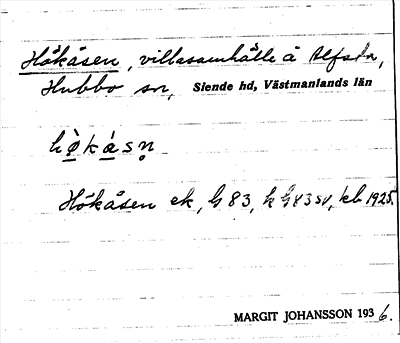 Hökåsen, villasamhälle å
Hubbo sn, Siende hd, Västmanlands län
Hökåsen ek, h 83, kb 1925.
MARGIT JOHANSSON 1936.